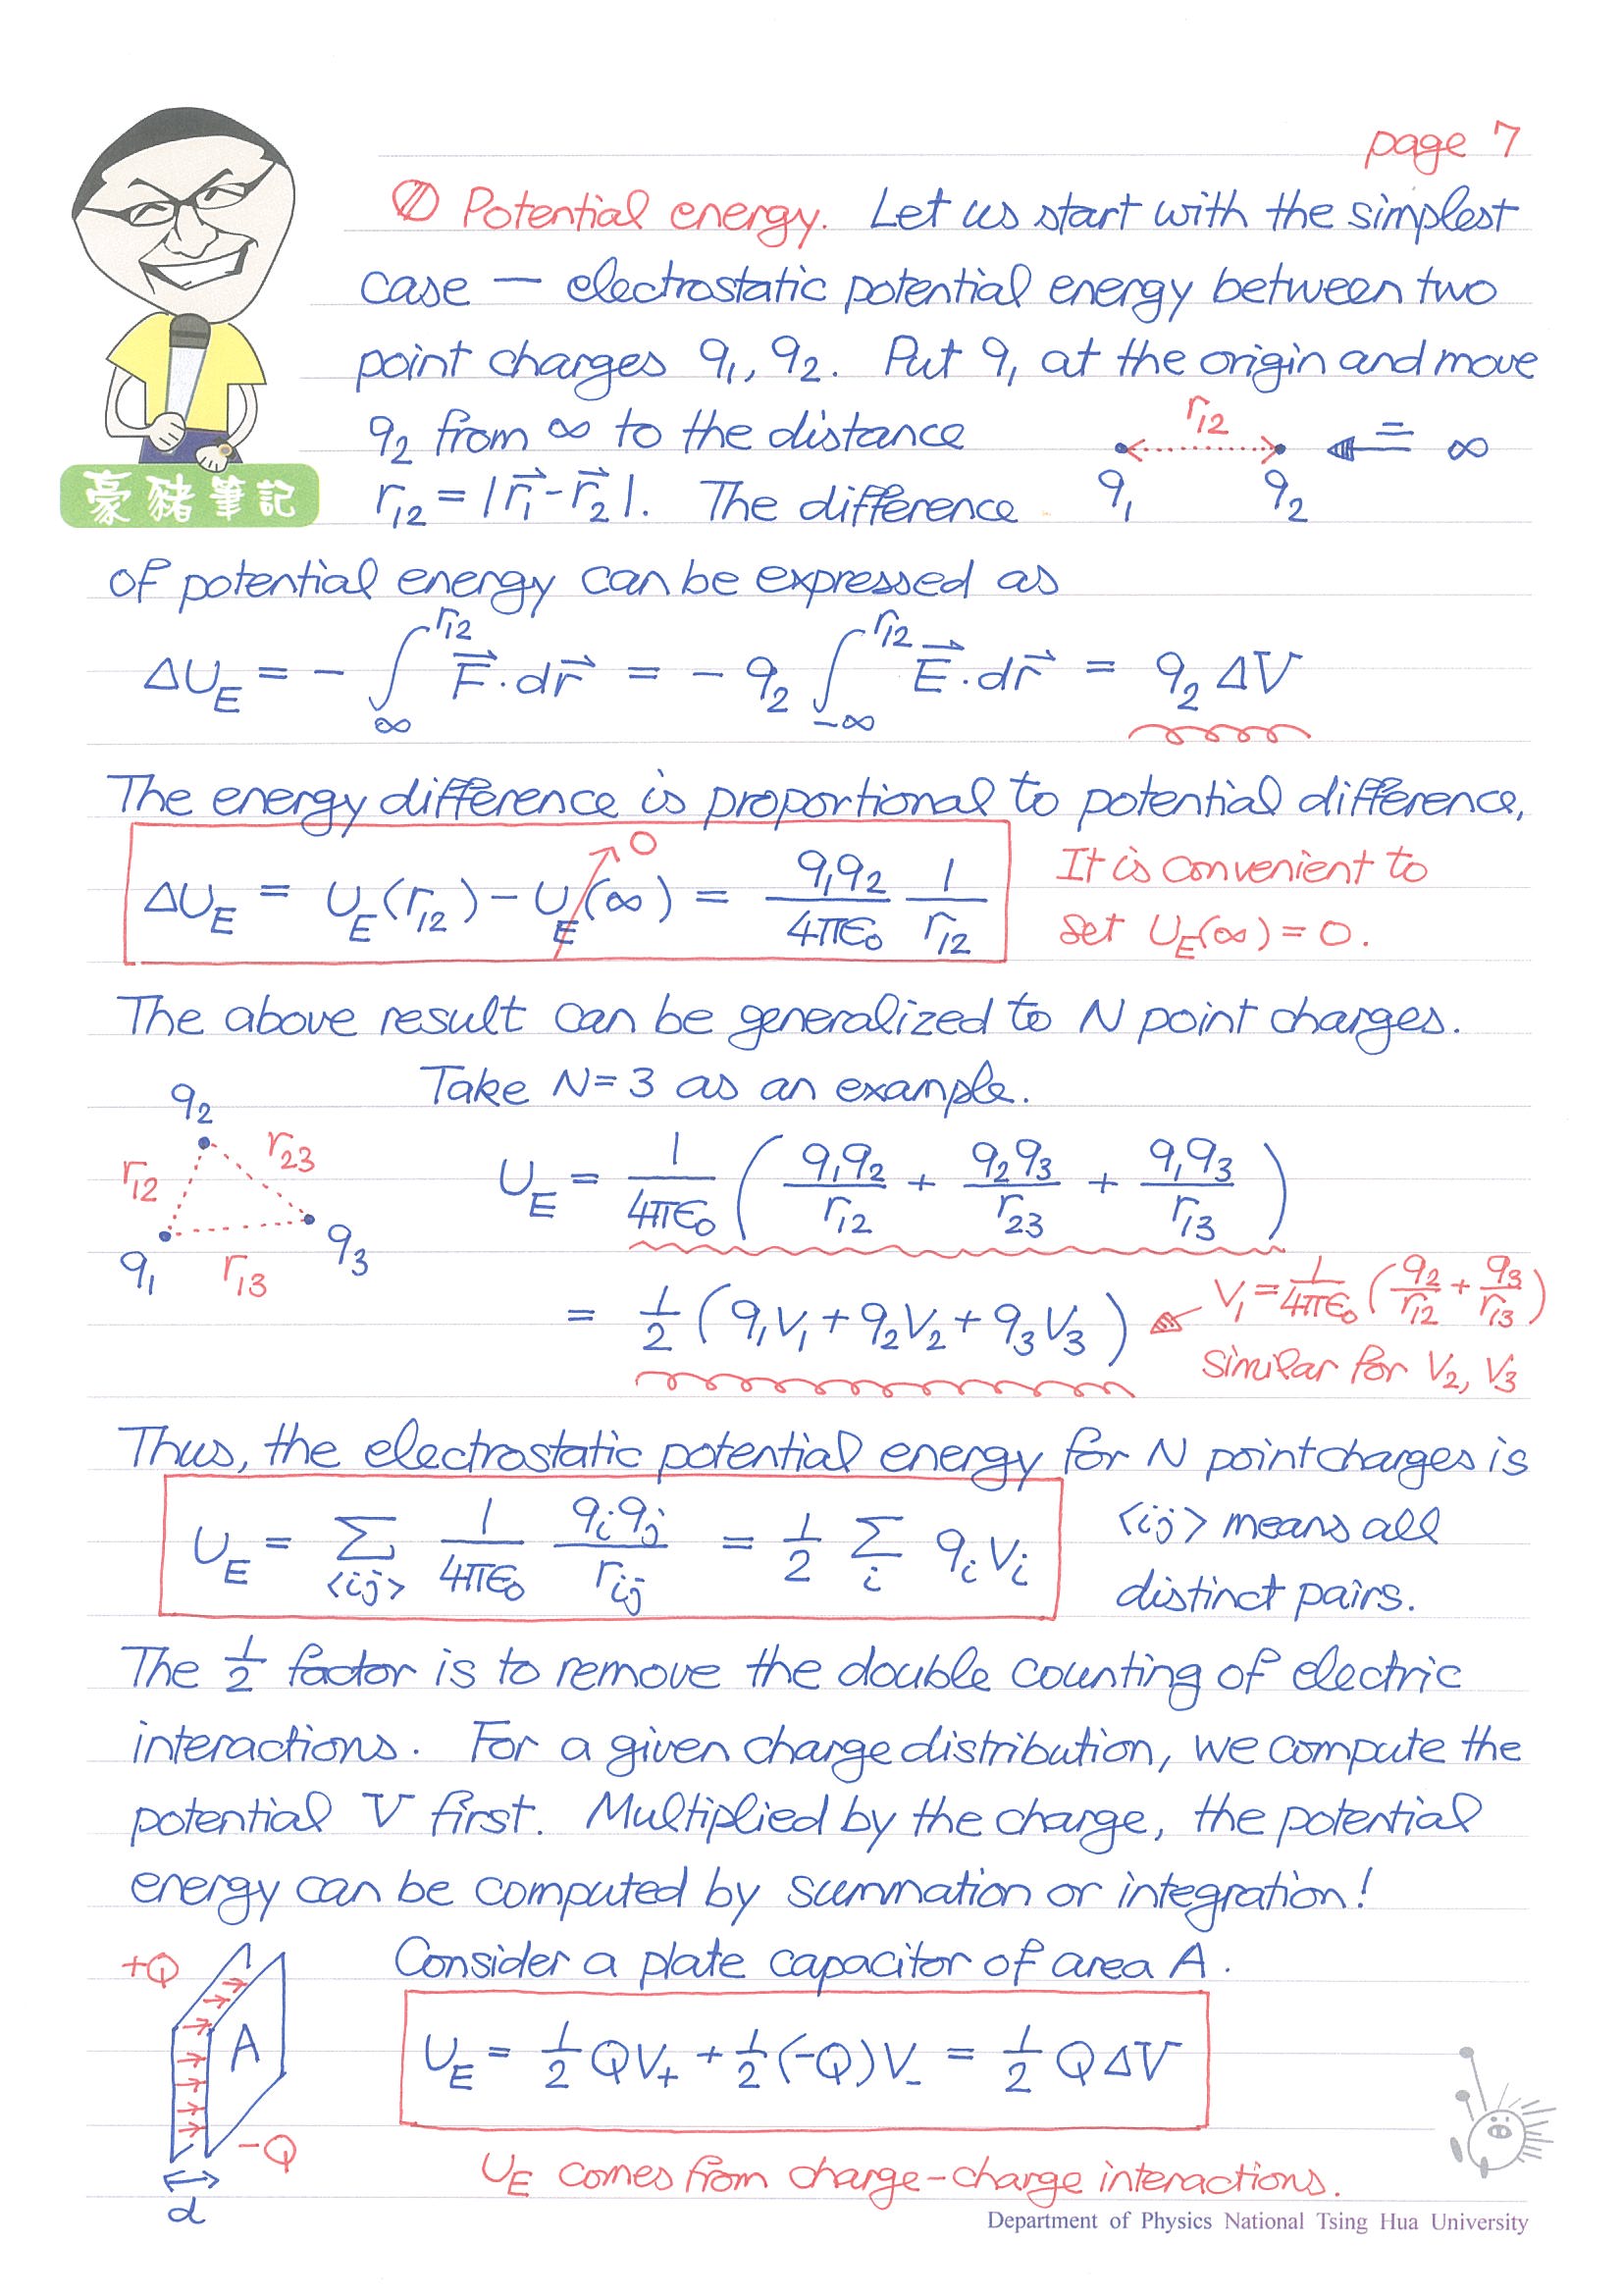 page 7
Potential energy. Let us start with the simplest
case — electrostatic potential energy between two
point charges q₁, q₂. Put q₁ at the origin and move
q₂ from ∞ to the distance
r₁₂ ⇐ ∞
q₁ q₂
豪豬筆記
r₁₂ = |r⃗₁ - r⃗₂|. The difference
of potential energy can be expressed as
ΔU_E = - ∫_∞^{r₁₂} F⃗ · dr⃗ = - q₂ ∫_{-∞}^{r₁₂} E⃗ · dr⃗ = q₂ ΔV
The energy difference is proportional to potential difference,
ΔU_E = U_E(r₁₂) - U_E(∞) → 0 = q₁q₂/4πε₀ 1/r₁₂
It is convenient to
set U_E(∞) = 0.
The above result can be generalized to N point charges.
Take N=3 as an example.
q₂
r₁₂ r₂₃
q₁ r₁₃ q₃
U_E = 1/4πε₀ ( q₁q₂/r₁₂ + q₂q₃/r₂₃ + q₁q₃/r₁₃ )
= 1/2 (q₁V₁ + q₂V₂ + q₃V₃)
V₁ = 1/4πε₀ ( q₂/r₁₂ + q₃/r₁₃ )
similar for V₂, V₃
Thus, the electrostatic potential energy for N point charges is
U_E = Σ_{<ij>} 1/4πε₀ qᵢqⱼ/rᵢⱼ = 1/2 Σᵢ qᵢVᵢ
<ij> means all
distinct pairs.
The 1/2 factor is to remove the double counting of electric
interactions. For a given charge distribution, we compute the
potential V first. Multiplied by the charge, the potential
energy can be computed by summation or integration!
Consider a plate capacitor of area A.
+Q
A
-Q
d
U_E = 1/2 QV₊ + 1/2 (-Q)V₋ = 1/2 QΔV
U_E comes from charge-charge interactions.
Department of Physics National Tsing Hua University